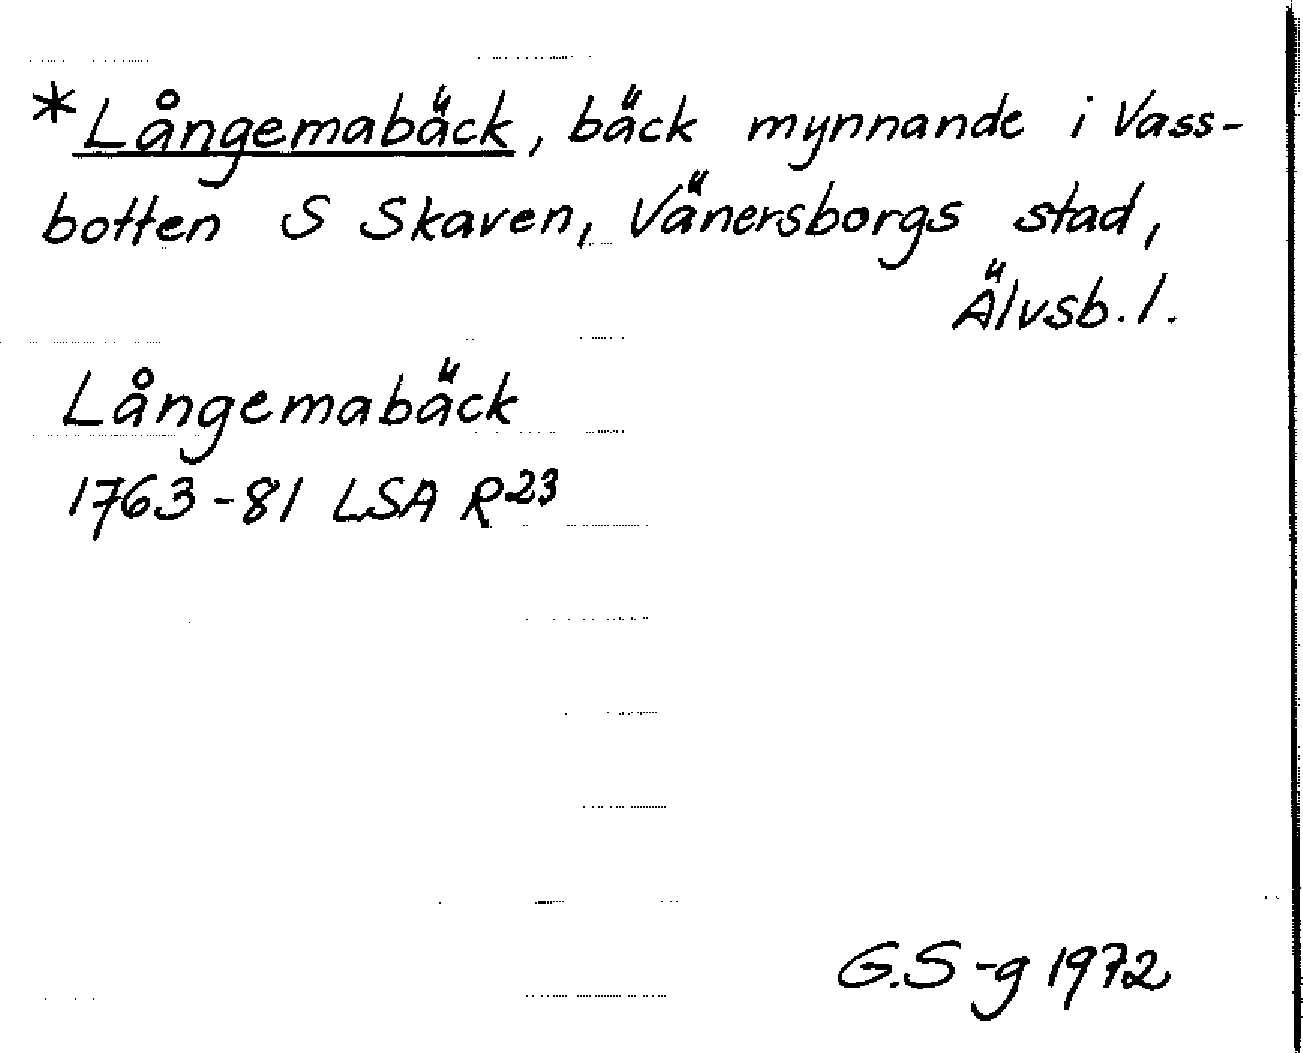 *Långemabäck, bäck mynnande i Vass-
botten S Skaven, Vänersborgs stad,
Älvsb. l.
Långemabäck
1763-81 LSA R²³
G.S-g 1972